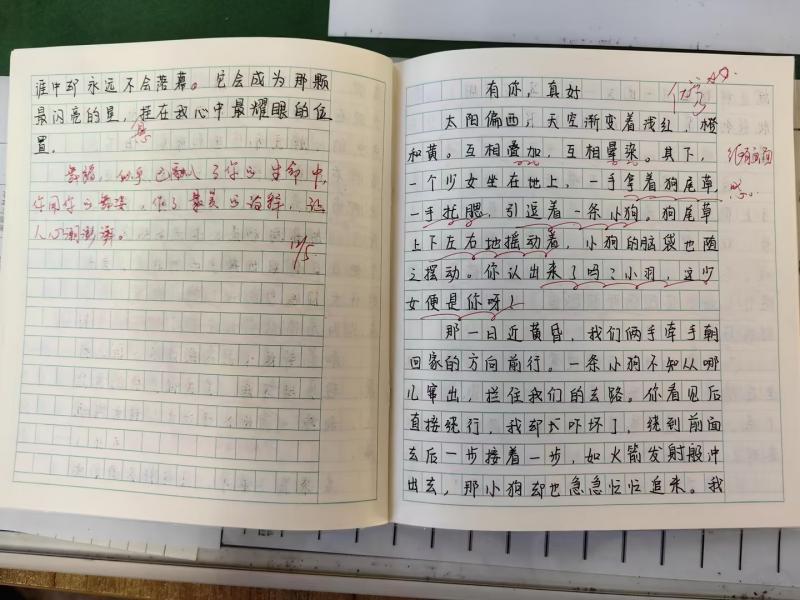 谁中却永远不会落幕。它会成为那颗
最闪亮的星，挂在我心中最耀眼的位
置。
舞蹈，似乎已融入了你的生命中，
你用你的舞姿，作了最美的诠释，让
人心潮澎湃。
12/5
有你，真好
优
太阳偏西，天空渐变着浅红，橙
和黄。互相叠加，互相晕染。其下，
一个少女坐在地上，一手拿着狗尾草
一手托腮，引逗着一条小狗。狗尾草
上下左右地摇动着，小狗的脑袋也随
之摆动。你认出来了吗？小羽，这少
女便是你呀！
那一日近黄昏，我们俩手牵手朝
回家的方向前行。一条小狗不知从哪
儿窜出，拦住我们的去路。你看见后
直接绕行，我却吓坏了，绕到前面
去后一步接着一步，如火箭发射般冲
出去，那小狗却也急急忙忙追来。我